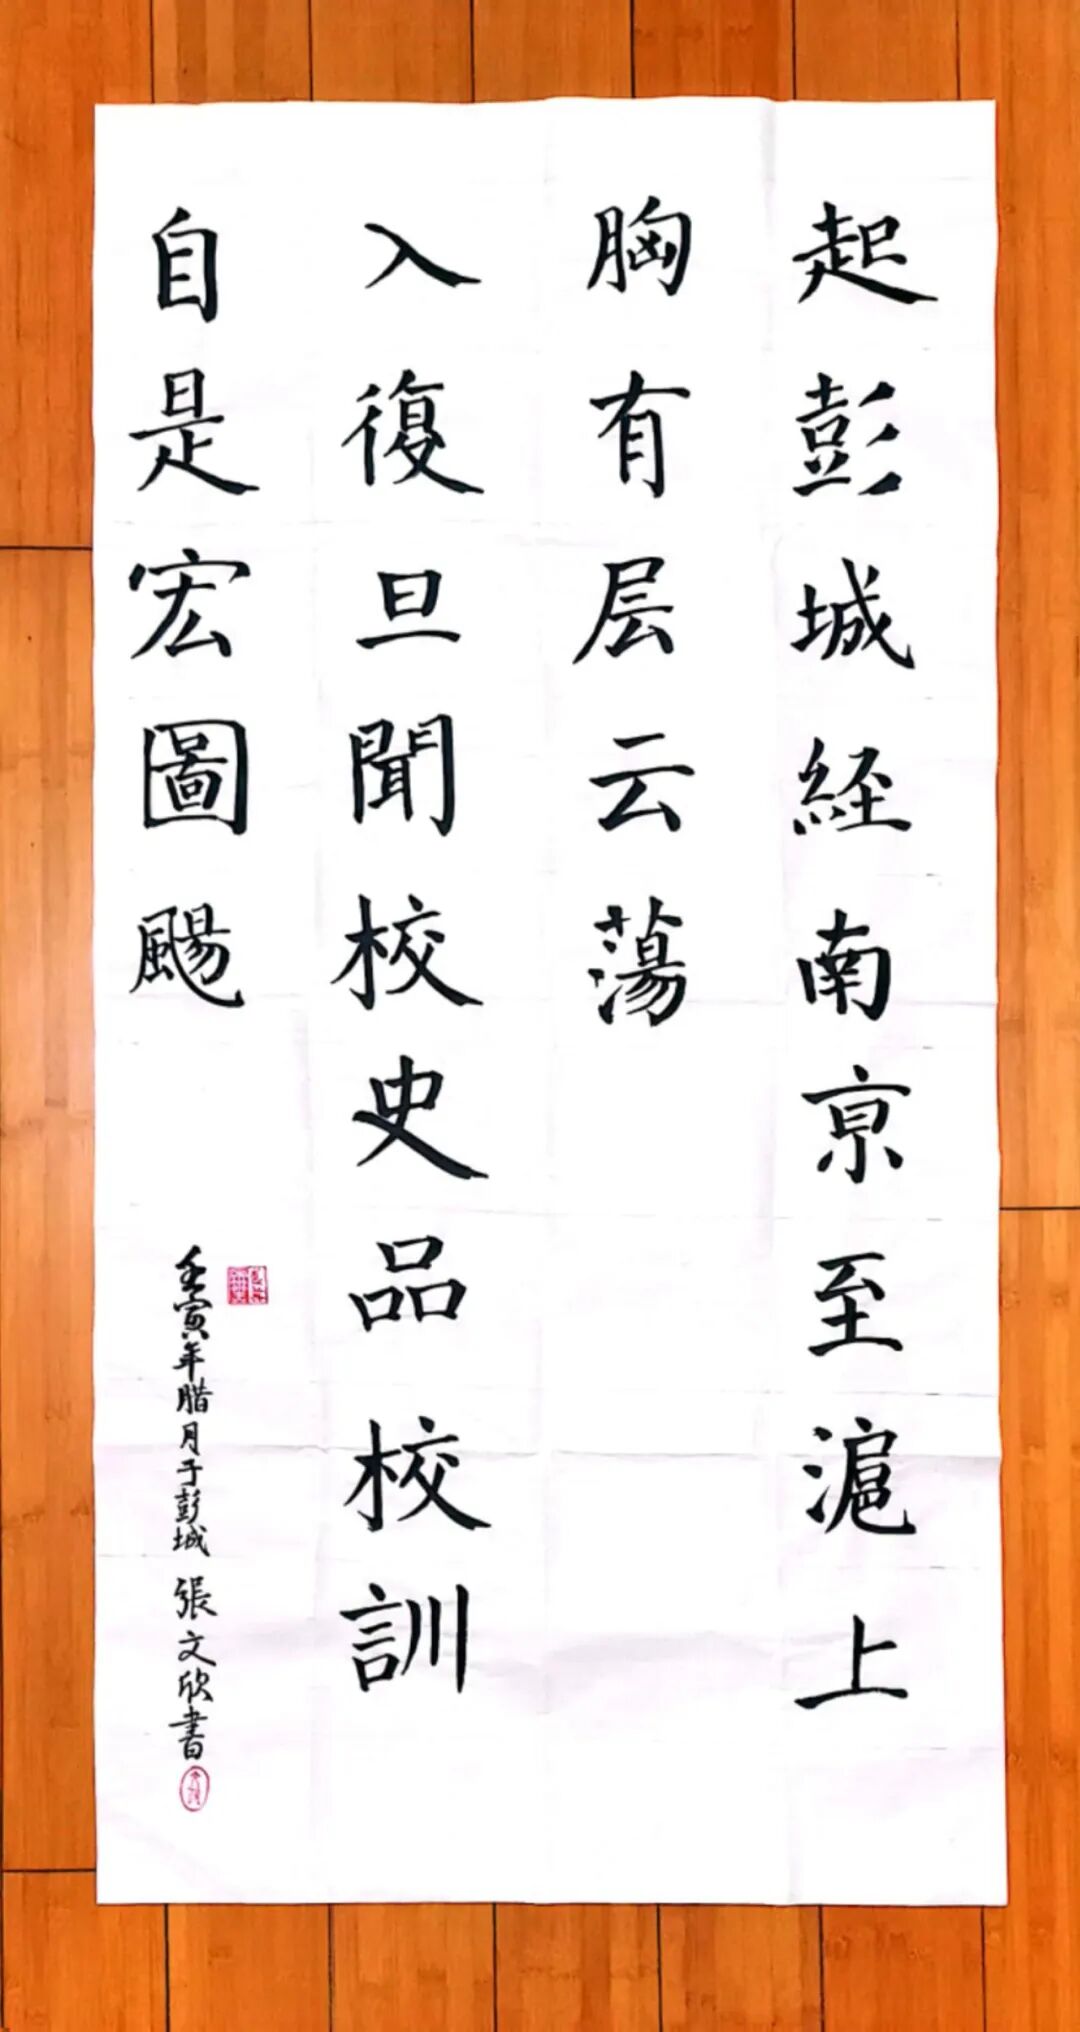 起彭城経南京至滬上
胸有层云蕩
入復旦聞校史品校訓
自是宏圖颺
壬寅年腊月于彭城 張文欣書